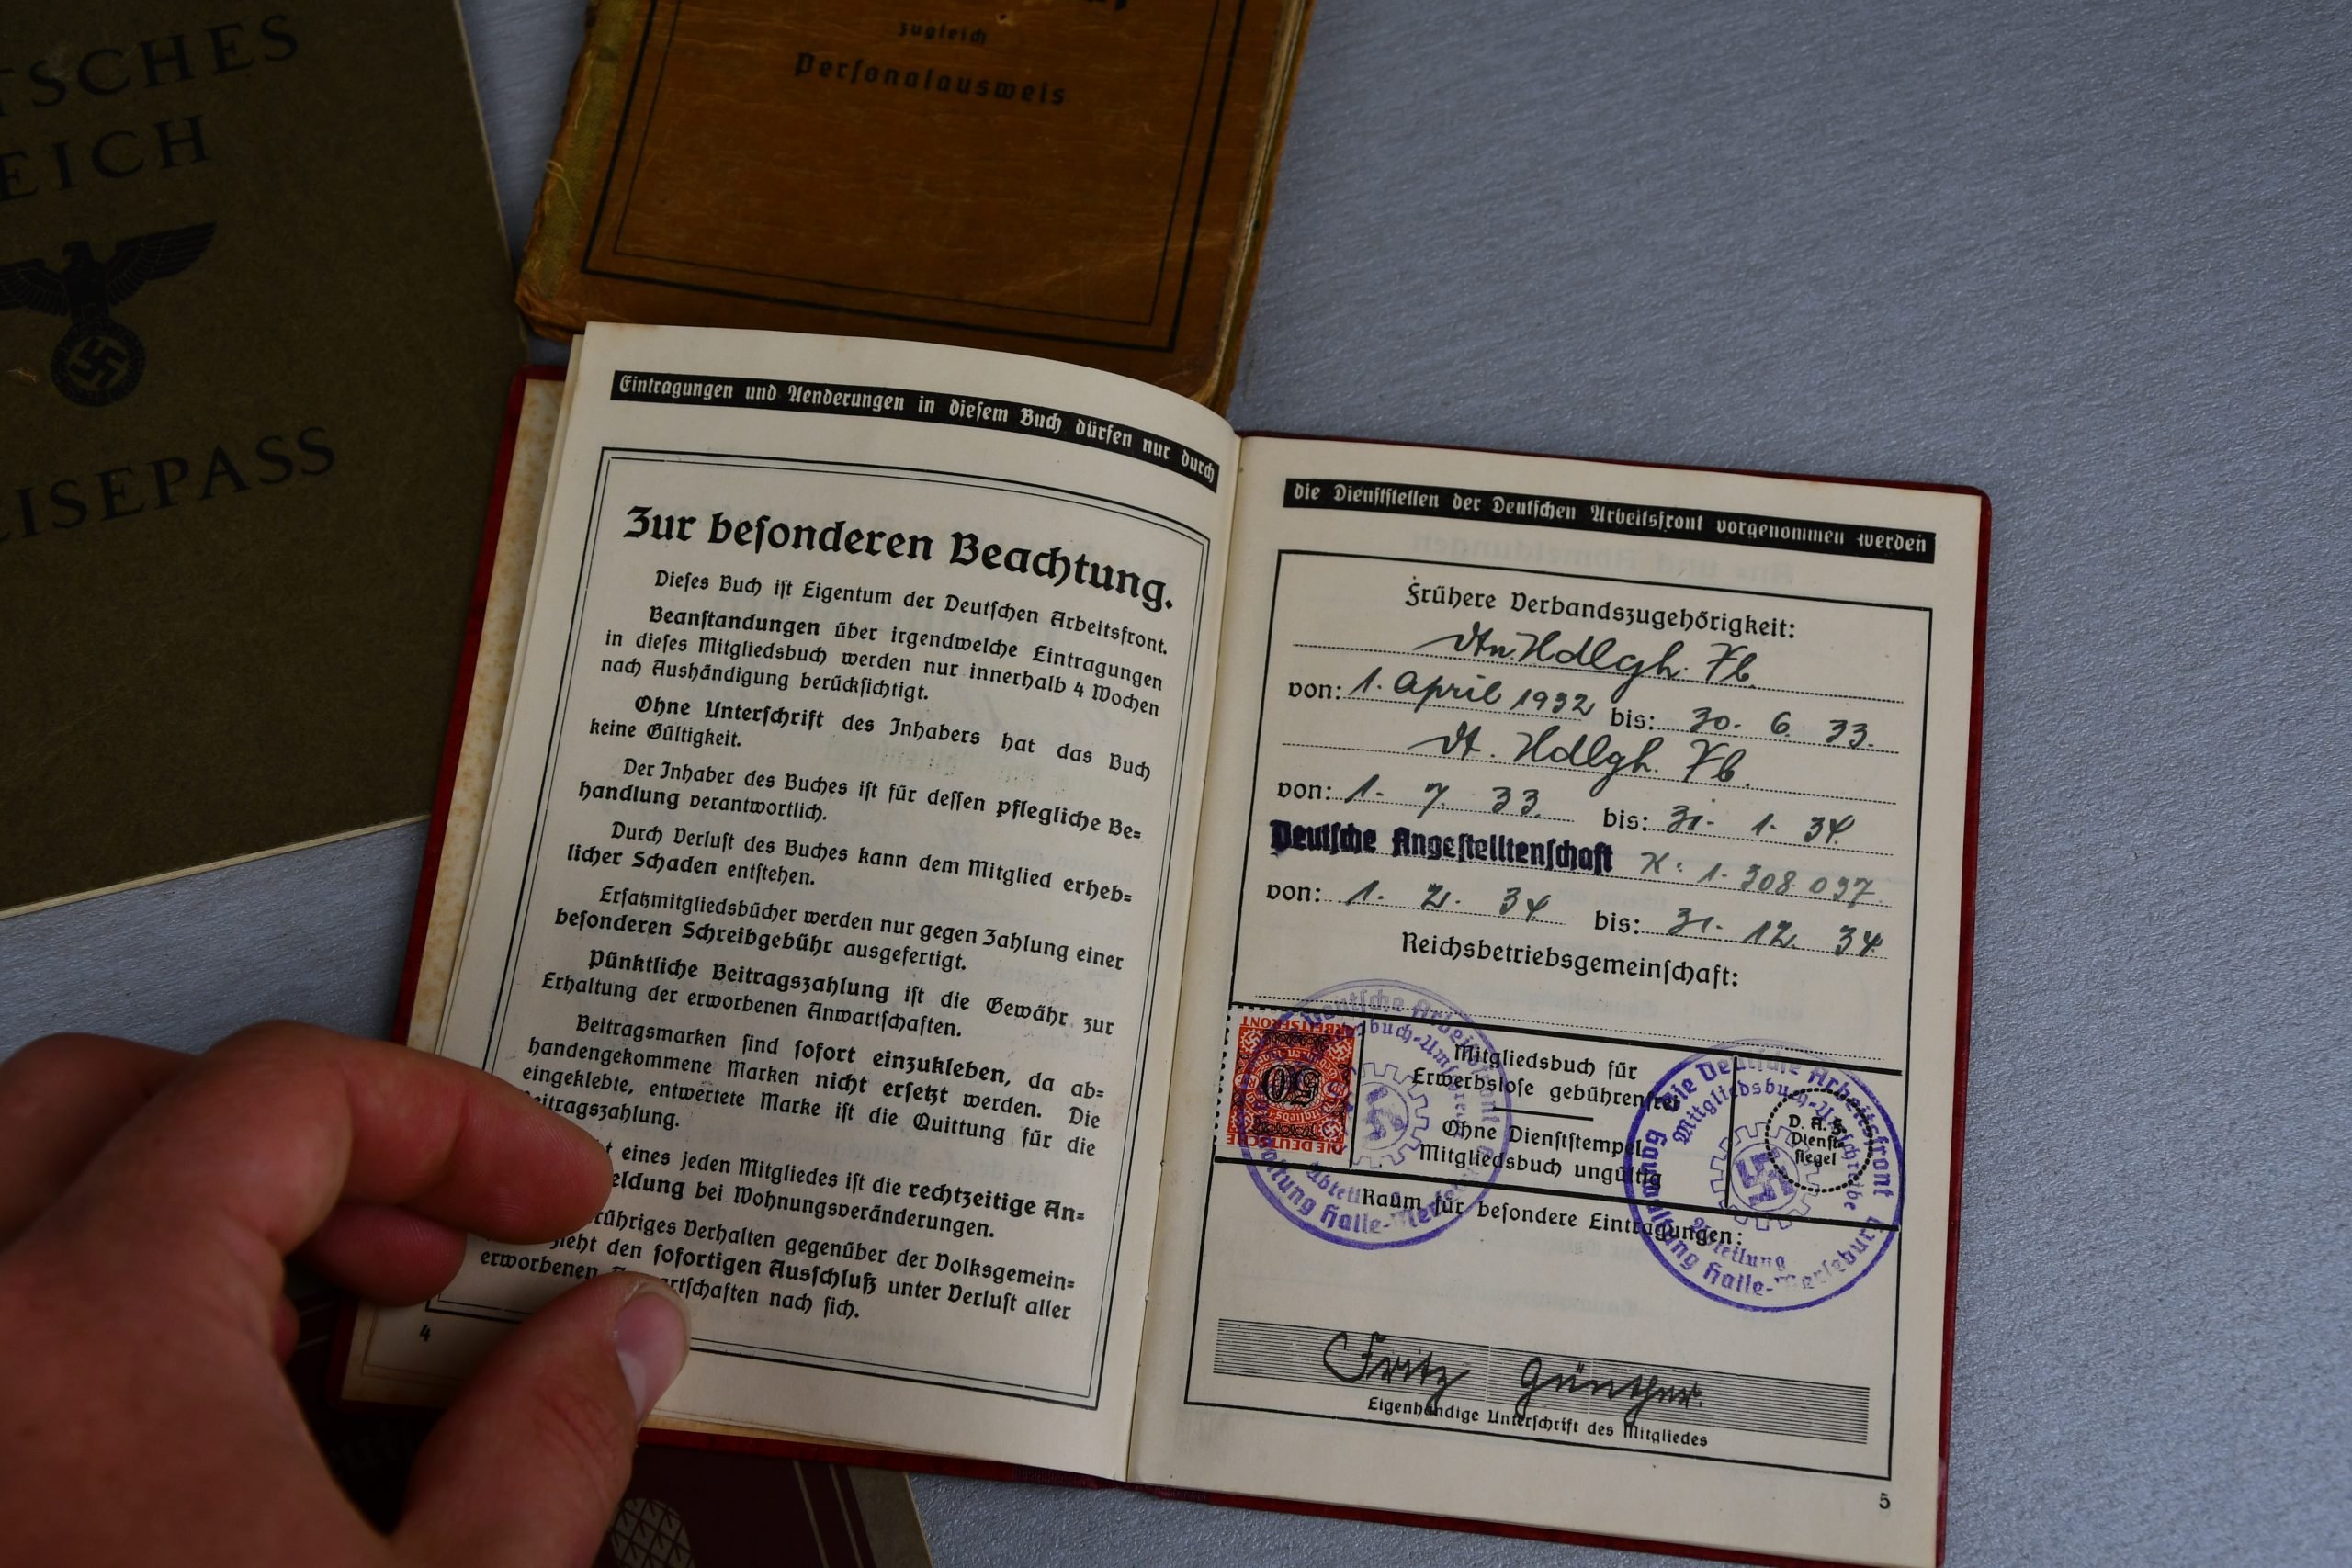 TSCHES
EICH
EISEPASS
zugleich
Personalausweis
Eintragungen und Aenderungen in diesem Buch dürfen nur durch
Zur besonderen Beachtung.
Dieses Buch ist Eigentum der Deutschen Arbeitsfront.
Beanstandungen über irgendwelche Eintragungen
in dieses Mitgliedsbuch werden nur innerhalb 4 Wochen
nach Aushändigung berücksichtigt.
Ohne Unterschrift des Inhabers hat das Buch
keine Gültigkeit.
Der Inhaber des Buches ist für dessen pflegliche Be-
handlung verantwortlich.
Durch Verlust des Buches kann dem Mitglied erheb-
licher Schaden entstehen.
Ersatzmitgliedsbücher werden nur gegen Zahlung einer
besonderen Schreibgebühr ausgefertigt.
Pünktliche Beitragszahlung ist die Gewähr zur
Erhaltung der erworbenen Anwartschaften.
Beitragsmarken sind sofort einzukleben, da ab-
handengekommene Marken nicht ersetzt werden. Die
eingeklebte, entwertete Marke ist die Quittung für die
eitragszahlung.
t eines jeden Mitgliedes ist die rechtzeitige An-
eldung bei Wohnungsveränderungen.
rühriges Verhalten gegenüber der Volksgemein-
zieht den sofortigen Ausschluß unter Verlust aller
erworbenen artschaften nach sich.
4
die Dienststellen der Deutschen Arbeitsfront vorgenommen werden
Frühere Verbandszugehörigkeit:
Hdlgh.
von: 1. April 1932 bis: 30. 6. 33.
Hdlgh.
von: 1. 7. 33. bis: 31. 1. 34.
Deutsche Angestelltenschaft K: 1. 308 037
von: 1. 2. 34 bis: 31. 12. 34
Reichsbetriebsgemeinschaft:
ARBEITSFRONT
50
DIE DEUTSCHE
Mitgliedsbuch für
Erwerbslose gebührenfrei
Ohne Dienststempel
Mitgliedsbuch ungültig
D. A. F.
Dienst-
siegel
Deutsche Arbeitsfront
Abteil
Halle-Merseb
Die Deutsche Arbeitsfront
Mitgliedsbuch-Umschreibe
Abteilung
Halle-Merseburg
Raum für besondere Eintragungen:
Fritz Günther.
Eigenhändige Unterschrift des Mitgliedes
5